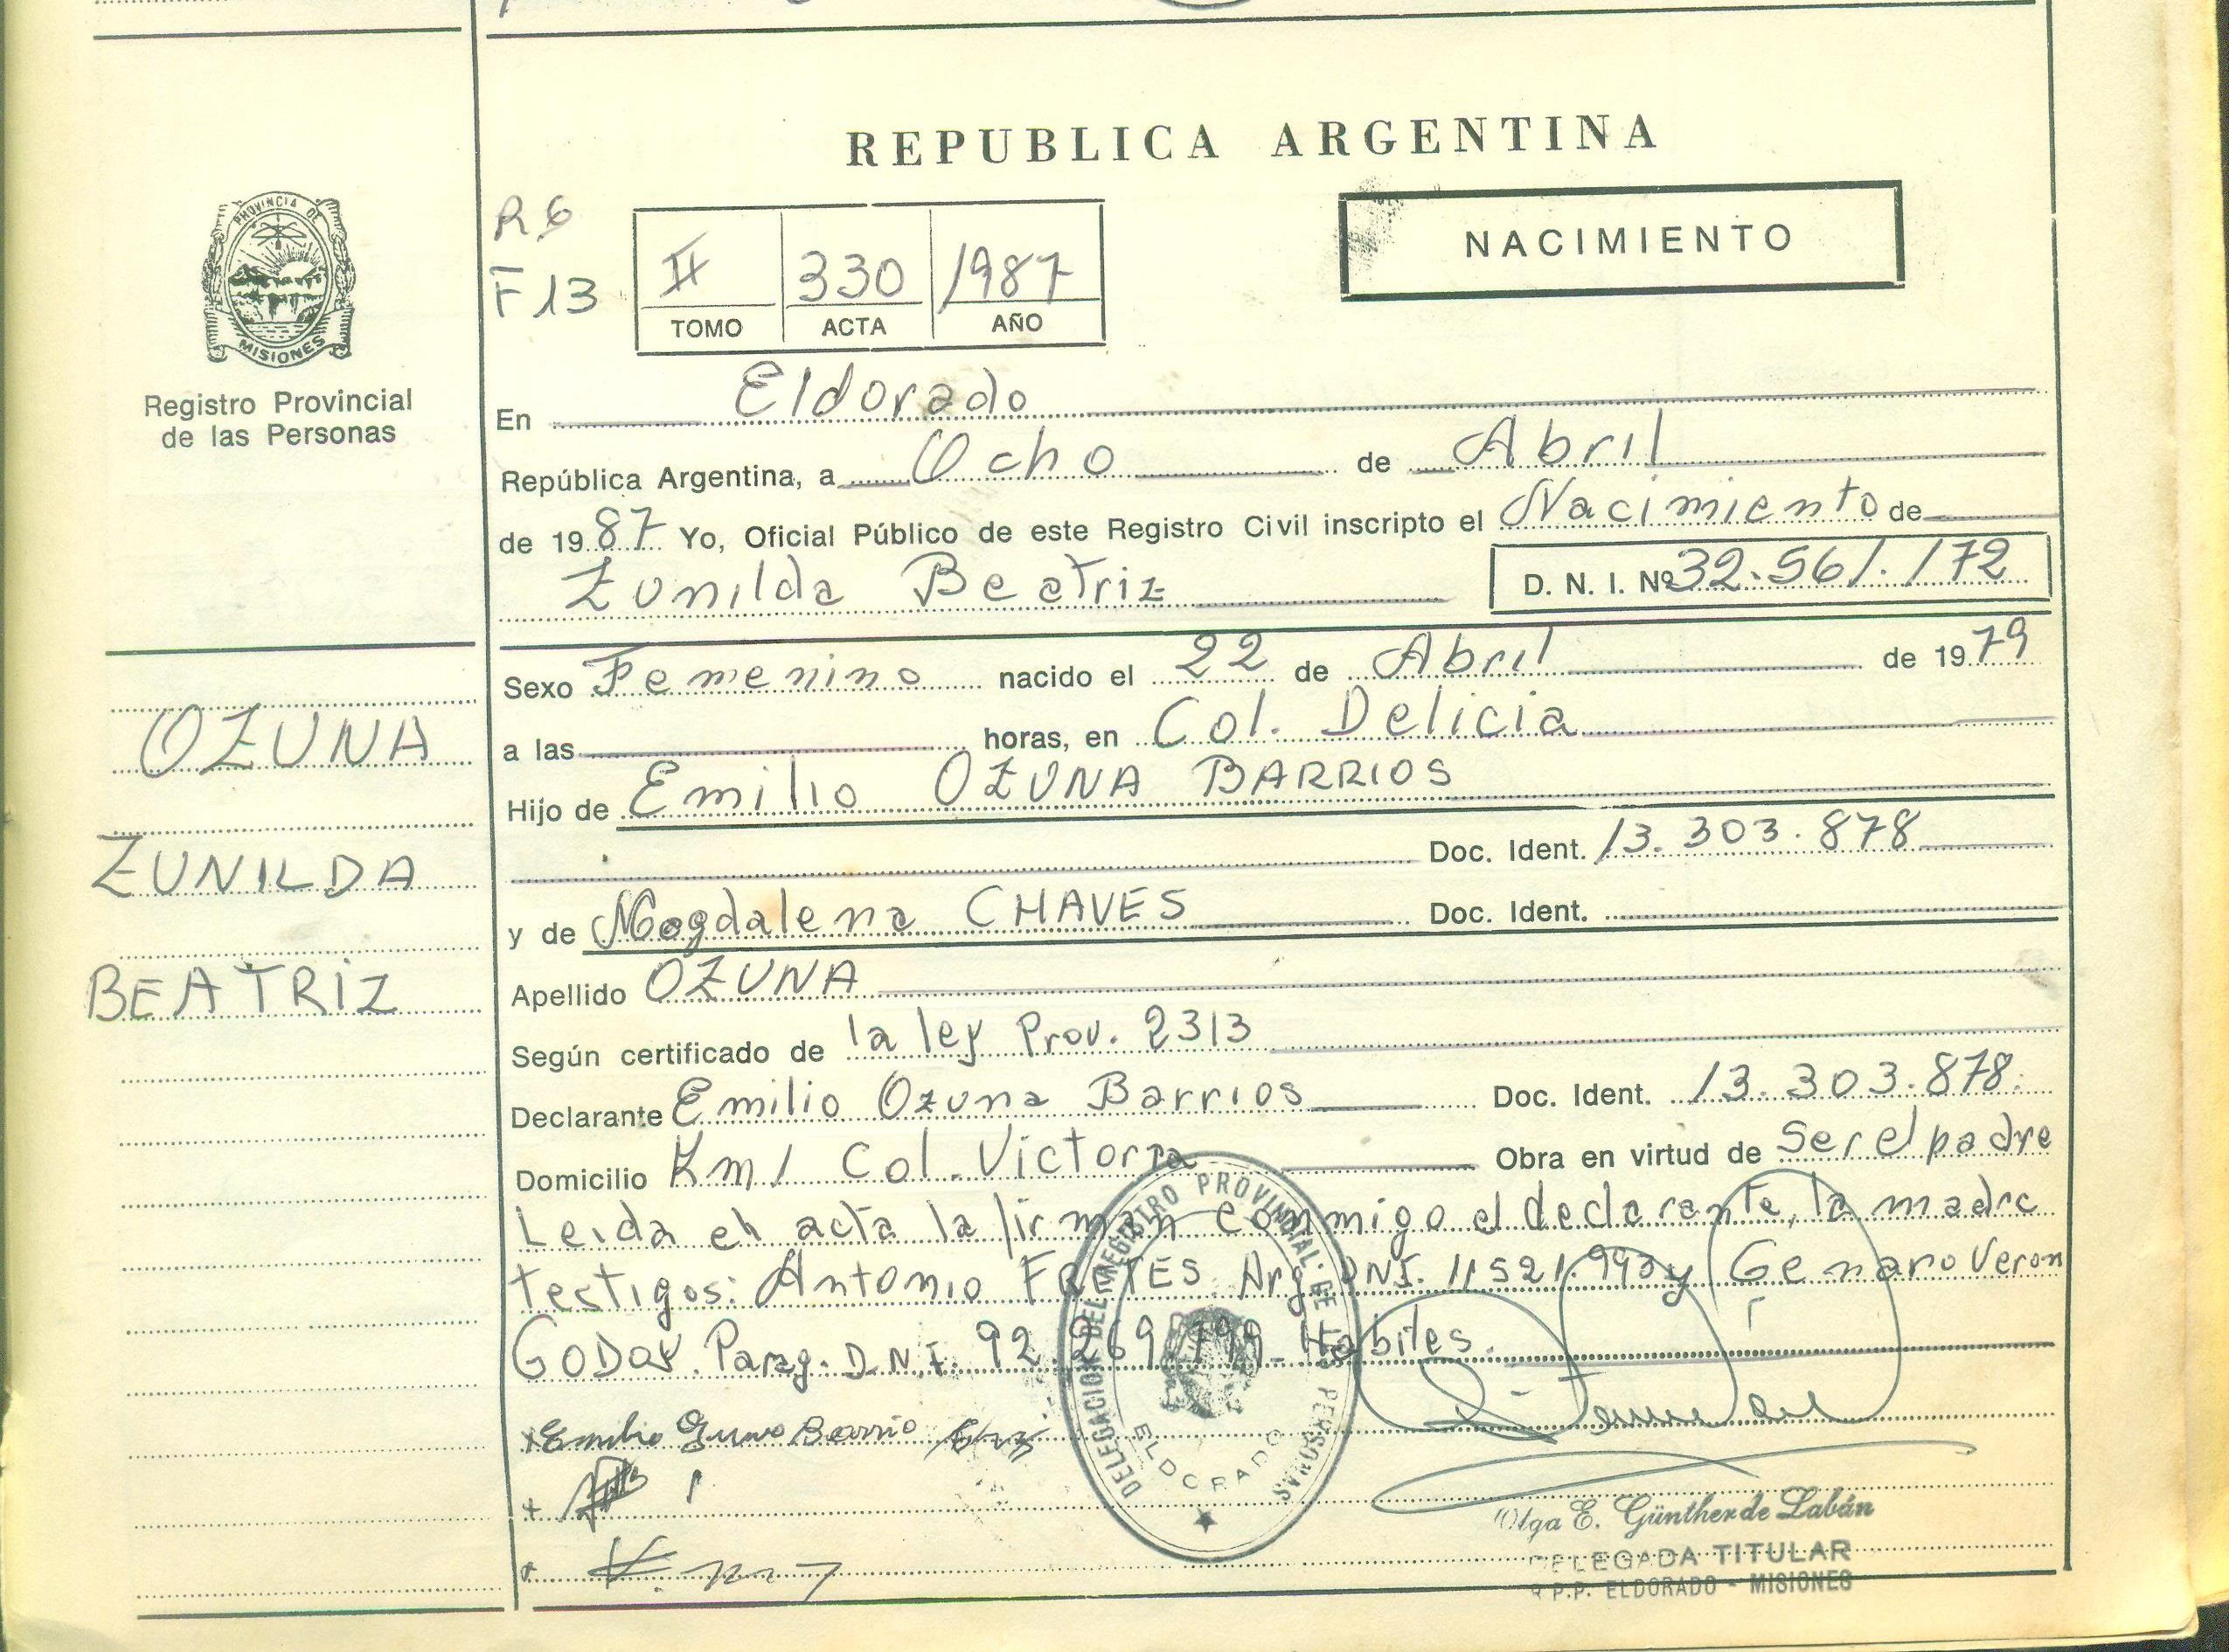 REPUBLICA ARGENTINA
PROVINCIA DE
MISIONES
Registro Provincial
de las Personas
R 6
F 13
II 330 1987
TOMO ACTA AÑO
NACIMIENTO
En Eldorado
República Argentina, a Ocho de Abril
de 1987 Yo, Oficial Público de este Registro Civil inscripto el Nacimiento de
Zunilda Beatriz D. N. I. Nº 32.561.172
Sexo Femenino nacido el 22 de Abril de 1979
a las horas, en Col. Delicia
Hijo de Emilio OZUNA BARRIOS
Doc. Ident. 13.303.878
y de Magdalena CHAVES Doc. Ident.
Apellido OZUNA
Según certificado de la ley Prov. 2313
Declarante Emilio Ozuna Barrios Doc. Ident. 13.303.878.
Domicilio Km 1 Col. Victoria Obra en virtud de Ser el padre
Leida el acta la firman conmigo el declarante, la madre
testigos: Antonio FRETES Arg. DNI. 11521.993 y Genaro Veron
GODOY. Parag. D.N.I. 92.269.799 Habiles.
OZUNA
ZUNILDA
BEATRIZ
DELEGACION DEL REGISTRO PROVINCIAL DE LAS PERSONAS
ELDORADO
Olga E. Günther de Labán
DELEGADA TITULAR
R.P.P. ELDORADO - MISIONES